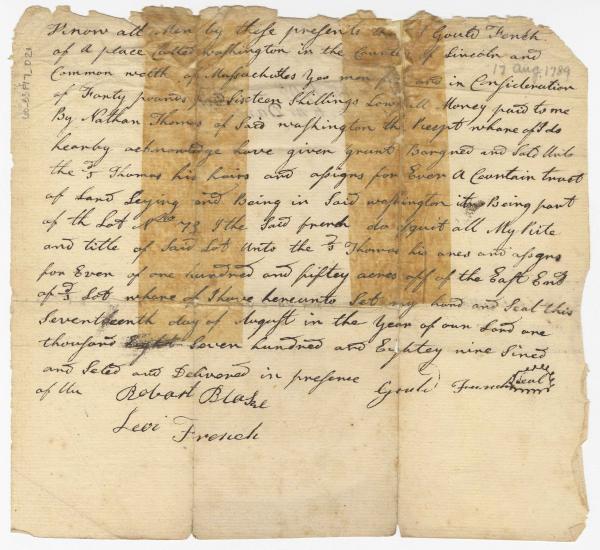 Know all Men by these presents I Gould French
of A place Called washington in the County of Lincoln and
17 Aug. 1789
Common welth of Massachutes Yeo men for and in Consideration
of Fourty pounds Sixteen Shillings Lawfull Money paid to me
By Nathan Thomas of Said washington the Recept whare of I do
hearby acknowledg have given grant Bargned and Sold Unto
the sd Thomas his hairs and asigns for Ever A Ceartain tract
of Land Leying and Being in Said washington Being part
of th Lot No 73 I the Said french do quit all My Rite
and title of Said Lot Unto the sd Thomas his ares and assgns
for Ever of one hundred and fiftey acres off of the East End
of sd Lot whare of I have hereunto Set my hand and Seal this
Seventeenth day of August in the Year of our Lord one
thousand Seven hundred and Eightey nine Sined
and Seled and Delivered in presence Gould French Seal
of us Robart Blake
Levi French